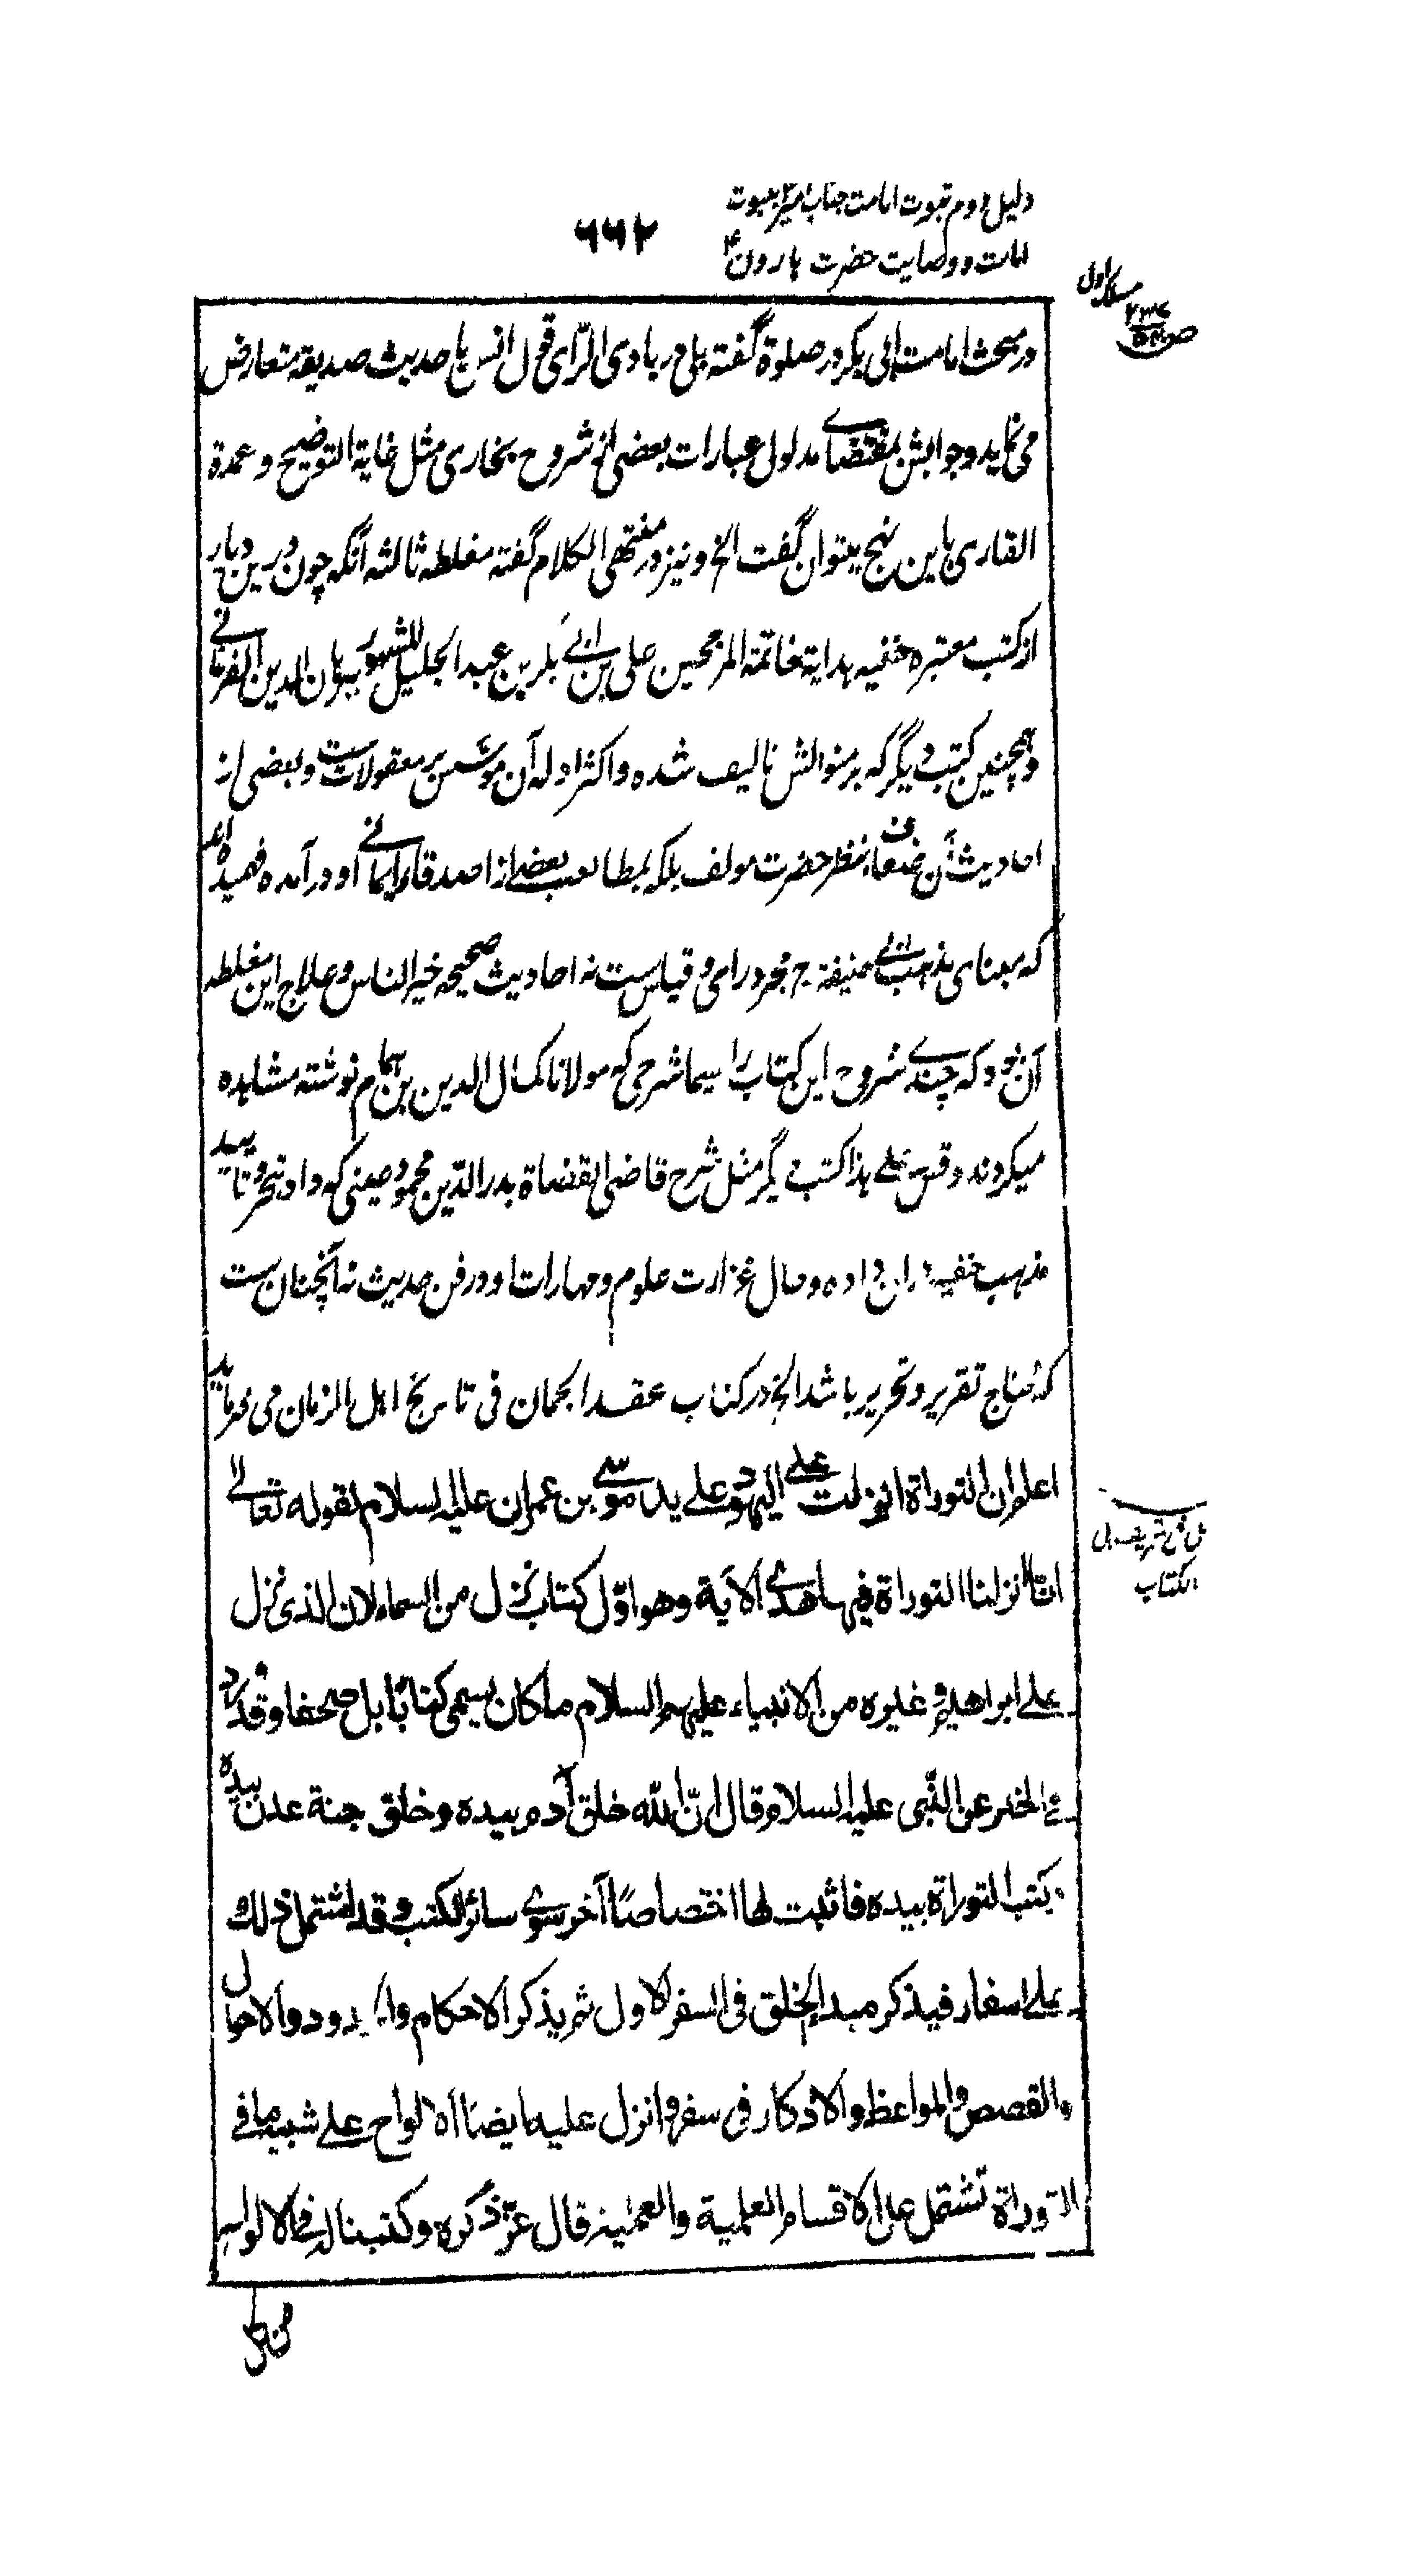 دلیل دوم ثبوت امامت جناب امیر بثبوت
۶۶۲
امامت و وصایت حضرت هارون ع
مسلک اول
در مبحث امامت ابی بکر در صلوة گفته بلی در بادی الرّای قول انس با حدیث صدیقه متعارض
می نماید و جوابش بمقتضای مدلول عبارات بعضی از شروح بخاری مثل غایة التوضیح و عمدة
القاری باین نهج میتوان گفت الخ و نیز در منتهی الکلام گفته مغلطه ثالثه آنکه چون درین دیار
از کتب معتبره حنفیه هدایة خاتمة المرجحین علی بن ابی بکر بن عبد الجلیل المشهور ببرهان الدین الفرغانی
و همچنین کتب دیگر که بر منوالش تالیف شده و اکثر ادله آن موسّس بر معقولاتست و بعضی از
احادیث آن ضعاف بنظر حضرت مولف بلکه بمطالعه بعضی از اصدقاء ایمانی او در آمده فهمیده اند
که مبنای مذهب ابی حنیفة مجرد رای و قیاس ست نه احادیث صحیحه خیر الناس و علاج این مغلطه
آن بود که چندی شروح این کتاب را سیما شرحی که مولانا کمال الدین بن همام نوشته مشاهده
میکردند و قس علی هذا کتب دیگر مثل شرح قاضی القضاة بدر الدّین محمود عینی که داد تبحر و تایید
مذهب حنفیه دران داده و حال غزارت علوم و مهارات او در فن حدیث نه آنچنان ست
که محتاج تقریر و تحریر باشد الخ در کتاب عقد الجمان فی تاریخ اهل الزمان می فرماید
اعلم ان التوراة انزلت علی الیهود علی ید موسی بن عمران علیه السلام لقوله تعالی
انّا انزلنا التوراة فیها هدی الآیة وهو اوّل کتاب نزل من السماء لان الذی نزل
علی ابراهیم و غیره من الانبیاء علیهم السلام ما کان یسمی کتابًا بل صحفا وقد ورد
فی الخبر عن النّبی علیه السلام قال انّ الله خلق آدم بیده وخلق جنة عدن بیده
وکتب التوراة بیده فاثبت لها اختصاصًا آخر سوی سائر الکتب وقد اشتمل ذلك
علی اسفار فیذکر مبدأ الخلق فی السفر الاول ثم یذکر الاحکام والحدود والاحوال
والقصص والمواعظ والاذکار فی سفر وانزل علیه ایضًا الالواح علی شبیه ما فی
التوراة تشتمل علی الاقسام العلمیة والعملیة قال عزّ ذکره وکتبنا له فی الالواح
من کل